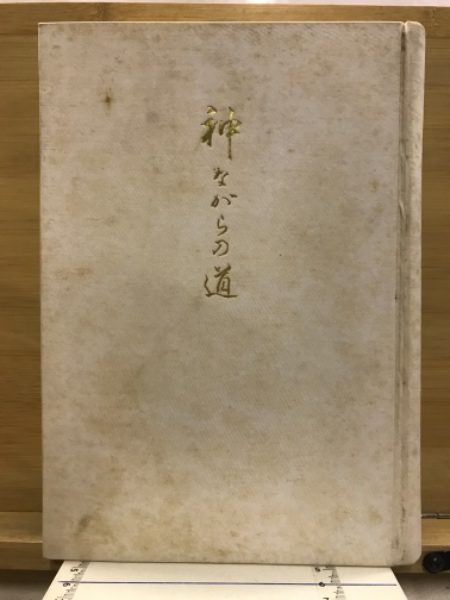 神ながらの道